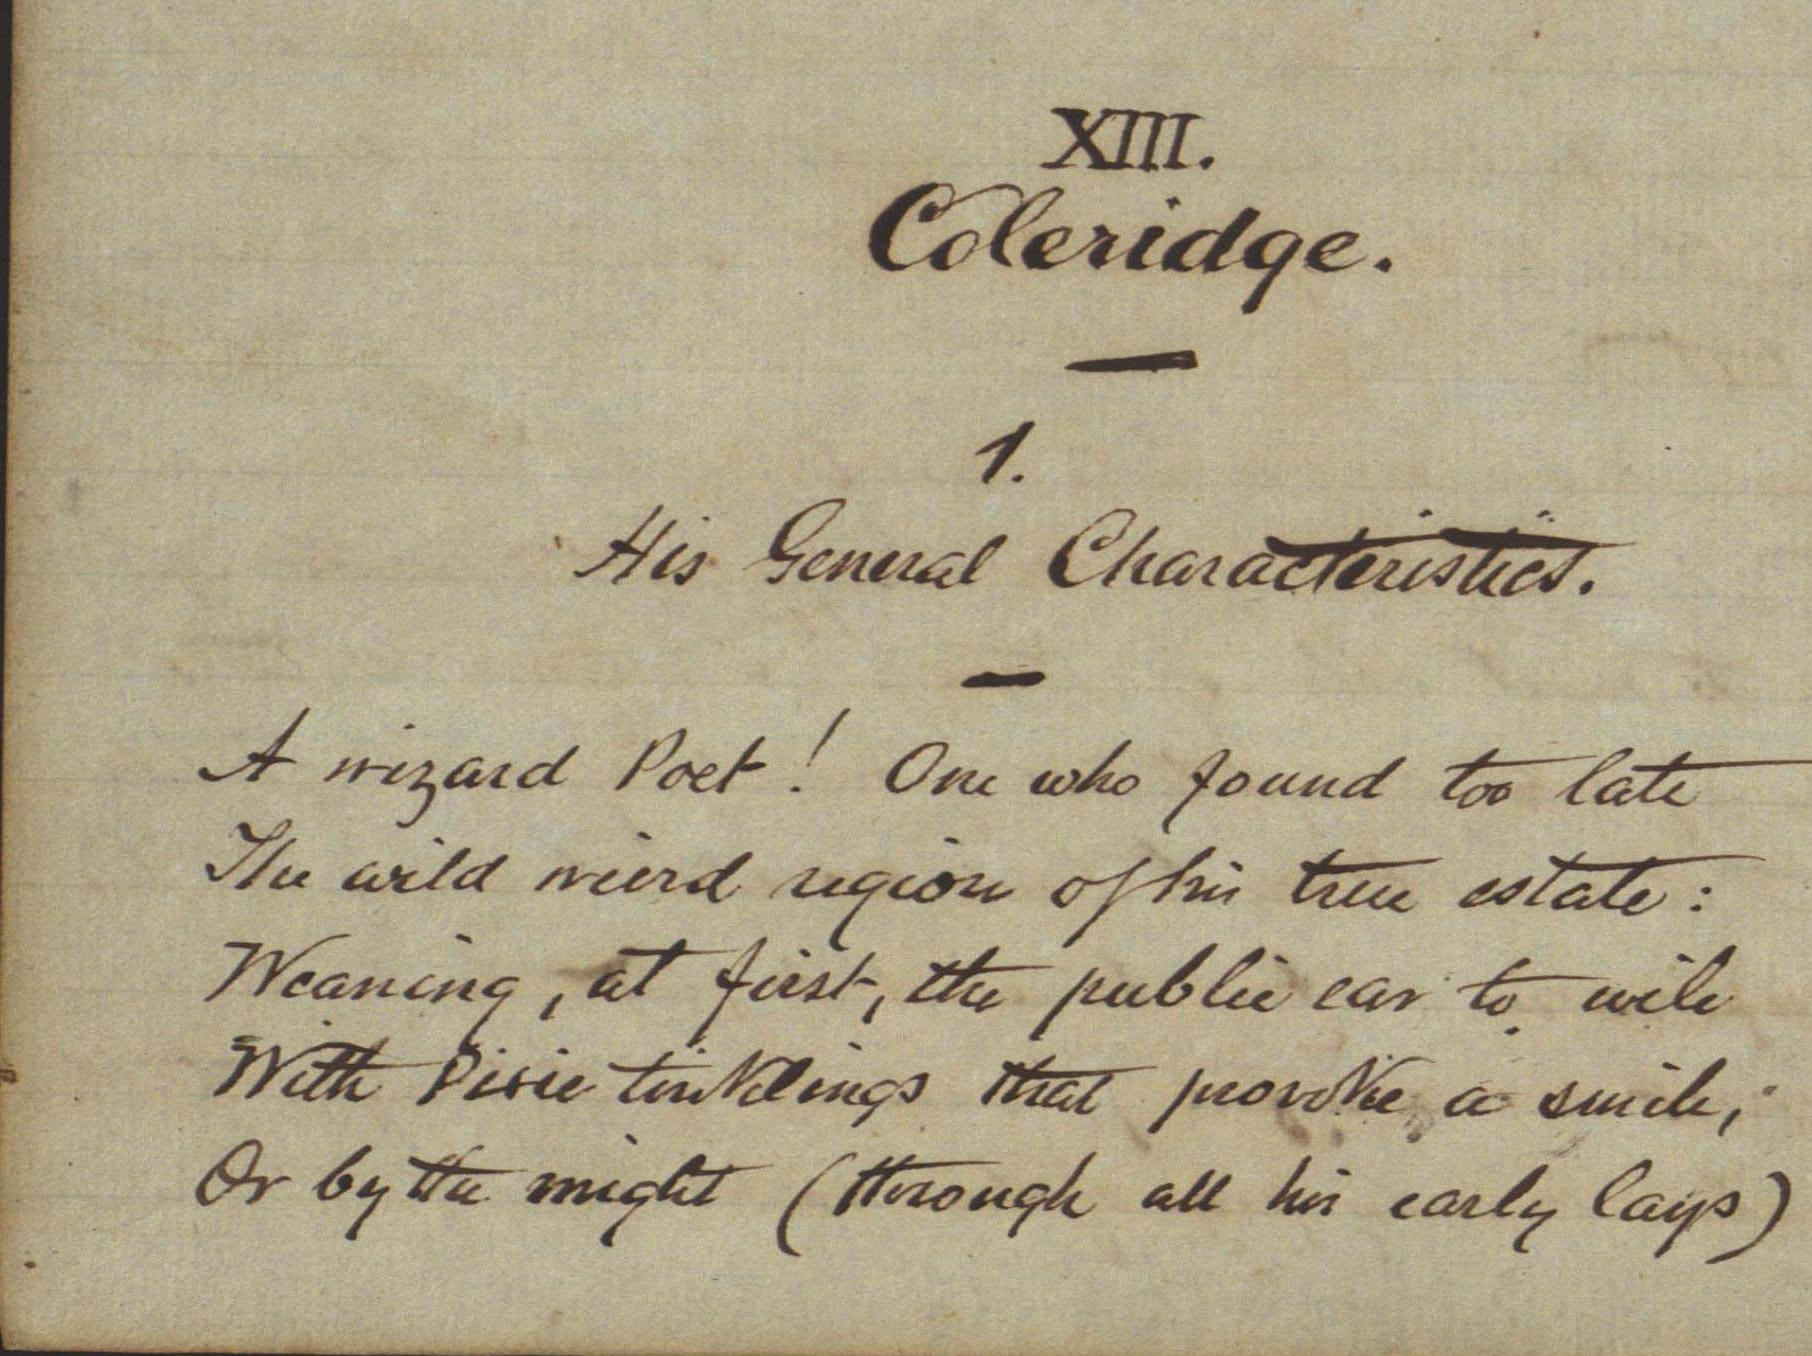 XIII.
Coleridge.
1.
His General Characteristics.
A wizard Poet! One who found too late
The wild wierd region of his true estate:
Weaning, at first, the public ear to wile
With Pixie tinklings that provoke a smile;
Or by the might (through all his early lays)